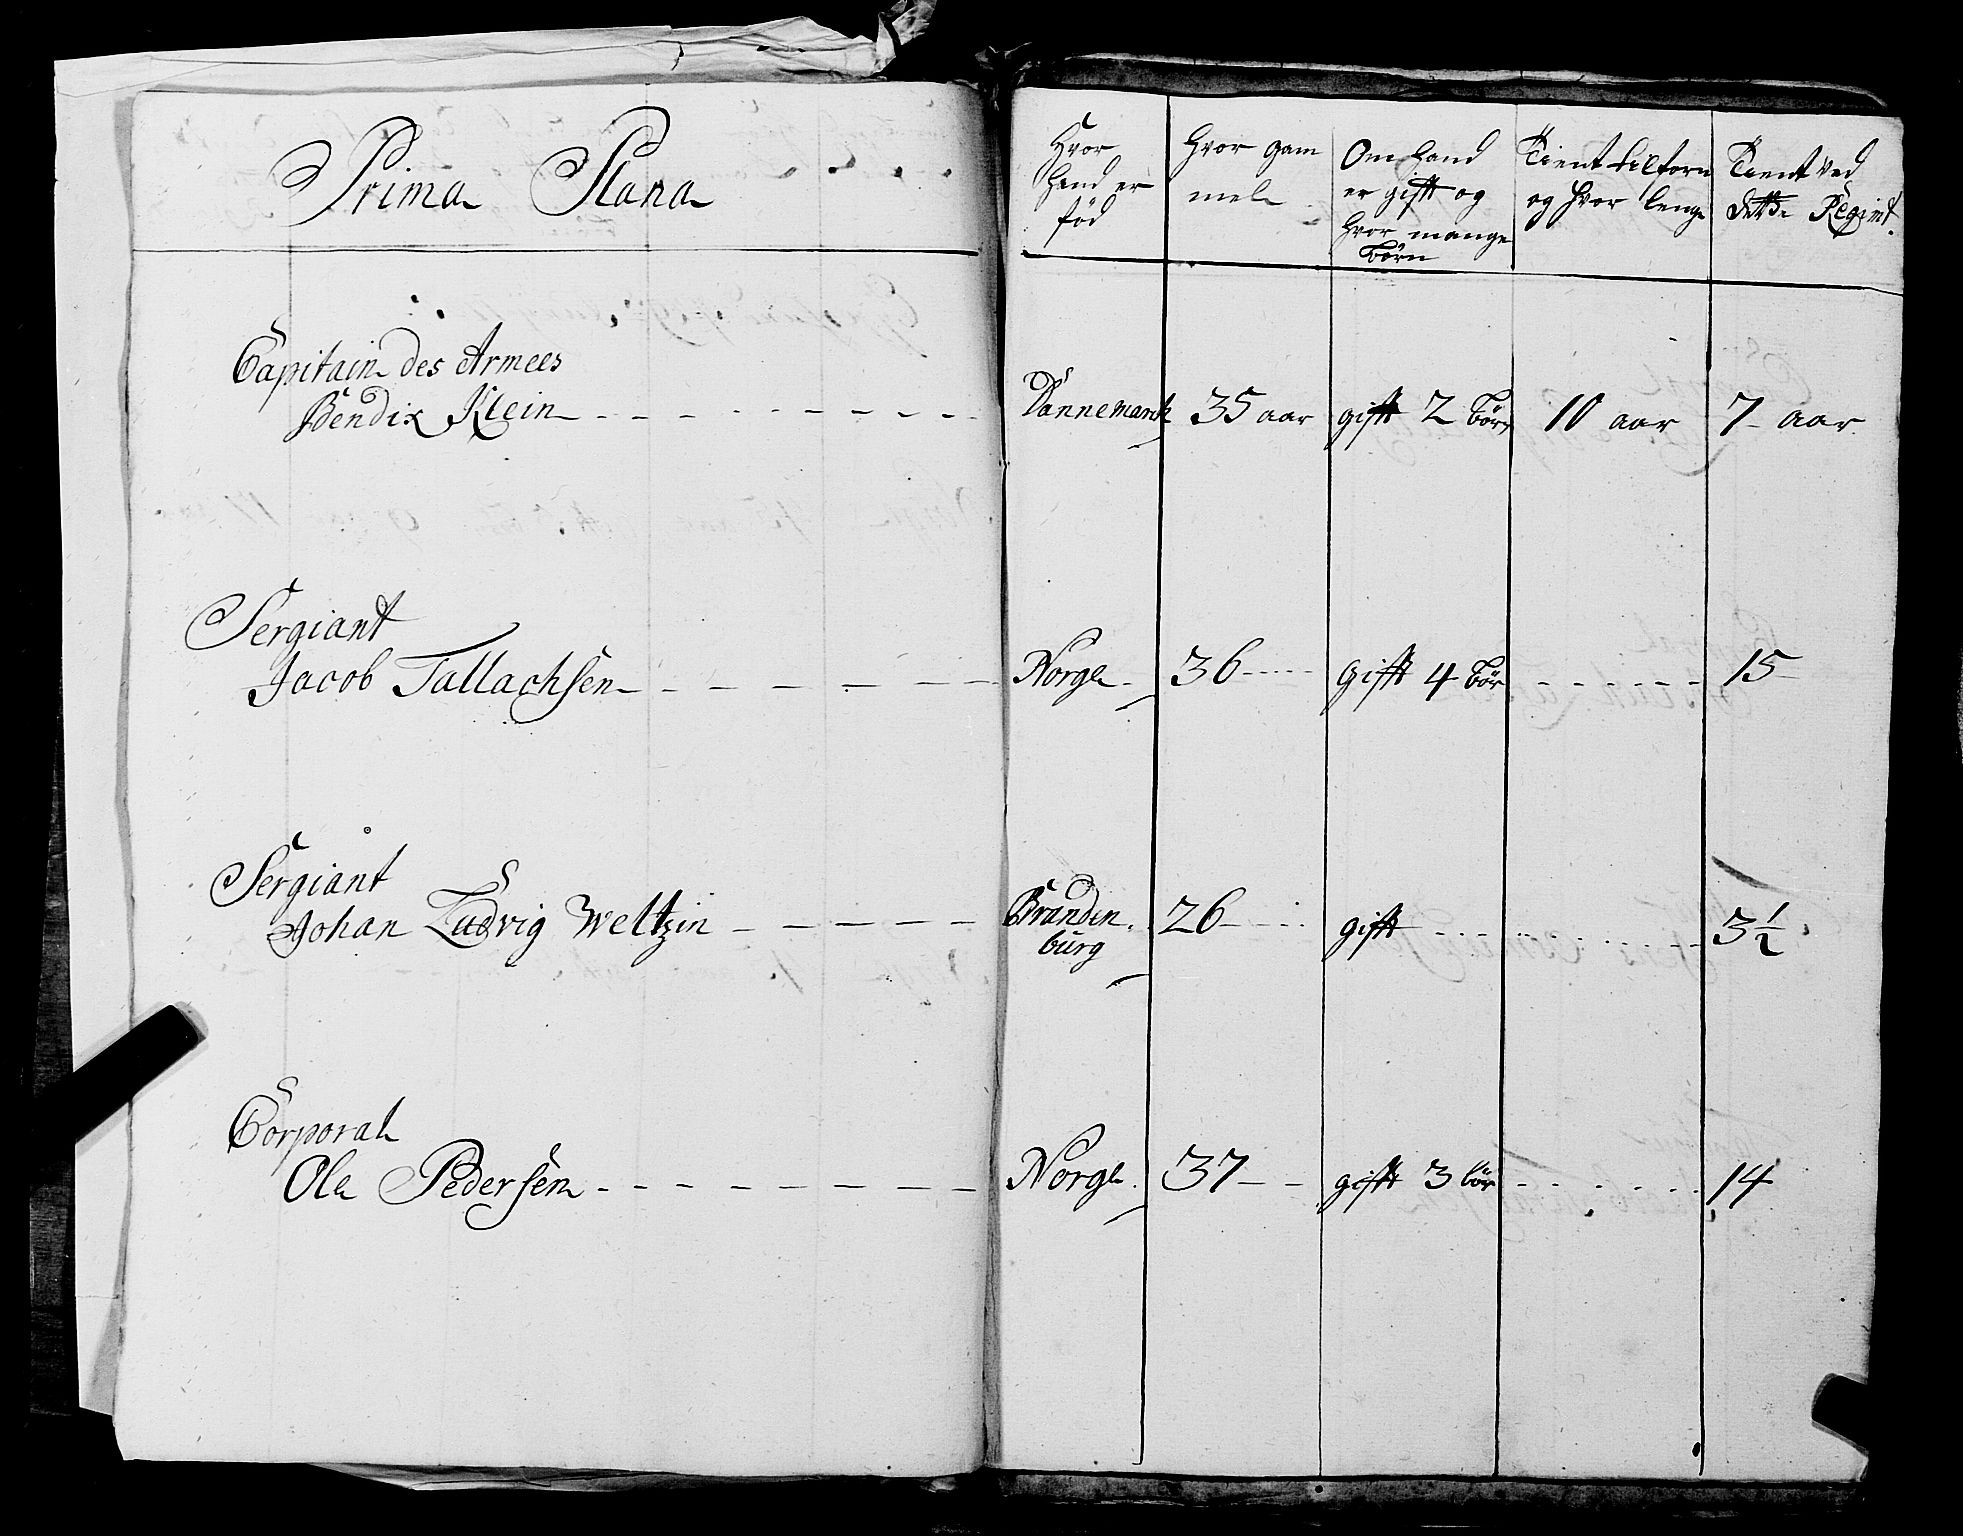 Prima Plana
Hvor
hand er
fød
hvor gam
mel
Om hand
er gift og
hvor mange
børn
Tient tilforn
og hvor lenge
Tient ved
dette Regimt.
Capitain des Armees
Bendix Klein Dannemarck 35 aar gift 2 bør 10 aar 7 aar
Sergiant
Jacob Tallachsen Norge 36 gift 4 bør 15
Sergiant
Johan Ludvig Weltzin Branden 26 gift 3½
burg
Corporal
Ole Pedersen Norge 37 gift 3 bør 14